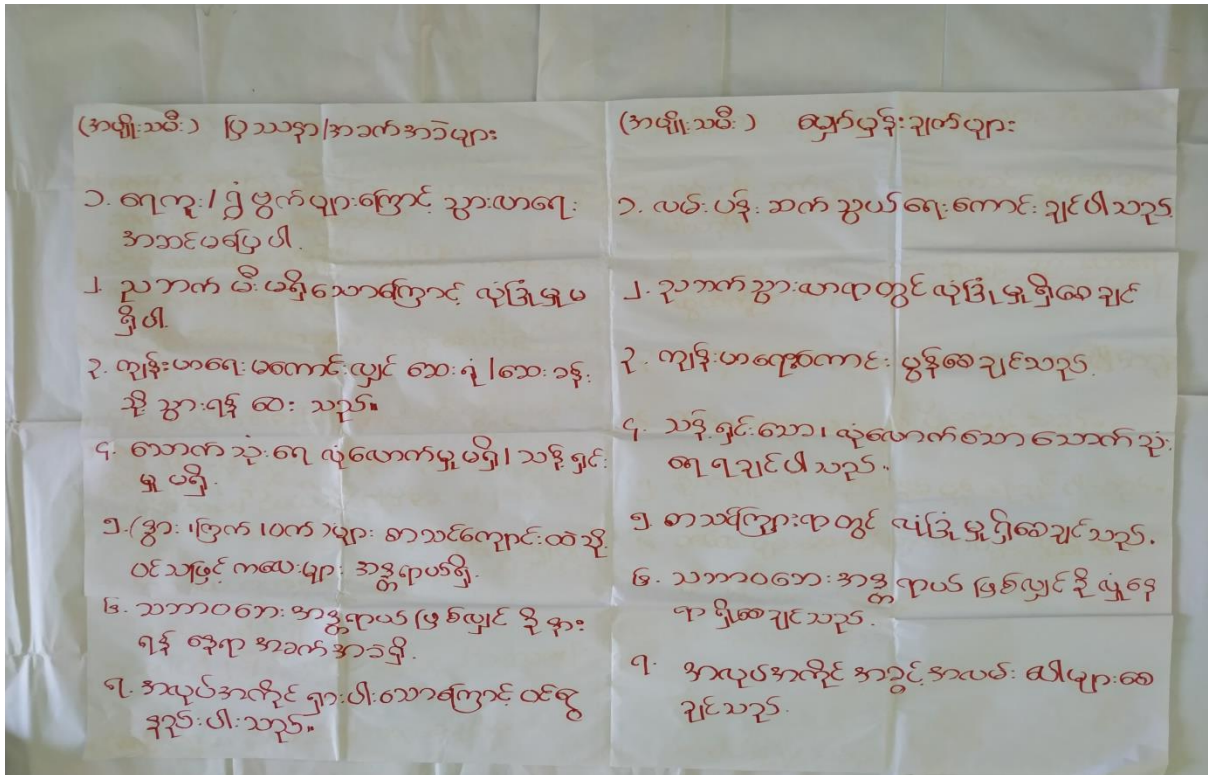 (အမျိုးသမီး) ပြဿနာ/အခက်အခဲများ
၁. ရေကူး/ရွှံ့ဗွက်များကြောင့် သွားလာရေး
အဆင်မပြေပါ.
၂. ညဘက် မီးမရှိသောကြောင့် လုံခြုံမှုမ
ရှိပါ.
၃. ကျန်းမာရေးမကောင်းလျှင် ဆေးရုံ/ဆေးခန်း
သို့ သွားရန် ဝေးသည်။
၄. သောက်သုံးရေ လုံလောက်မှုမရှိ/သန့်ရှင်း
မှု မရှိ.
၅. (နွား၊ကြက်၊ဝက်)များ စာသင်ကျောင်းထဲသို့
ဝင်သဖြင့် ကလေးများ အန္တရာယ်ရှိ.
၆. သဘာဝဘေးအန္တရာယ်ဖြစ်လျှင် ခိုနား
ရန် နေရာ အခက်အခဲရှိ.
၇. အလုပ်အကိုင် ရှားပါးသောကြောင့် ဝင်ငွေ
နည်းပါးသည်။
(အမျိုးသမီး) မျှော်မှန်းချက်များ
၁. လမ်းပန်းဆက်သွယ်ရေးကောင်းချင်ပါသည်.
၂. ညဘက်သွားလာရာတွင် လုံခြုံမှုရှိစေချင်
၃. ကျန်းမာရေးကောင်းမွန်စေချင်သည်.
၄. သန့်ရှင်းသော၊ လုံလောက်သော သောက်သုံး
ရေရချင်ပါသည်.
၅. စာသင်ကြားရာတွင် လုံခြုံမှုရှိစေချင်သည်.
၆. သဘာဝဘေးအန္တရာယ်ဖြစ်လျှင် ခိုလှုံနေ
ရာ ရှိစေချင်သည်.
၇. အလုပ်အကိုင် အခွင့်အလမ်း ပေါများစေ
ချင်သည်.